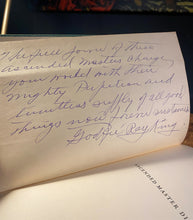 The Great Love of These
Ascended Masters Charge
your World with Their
Mighty Perfection and
Limitless supply of all good
things now forever sustained
Godfre Ray King
ASCENDED MASTER